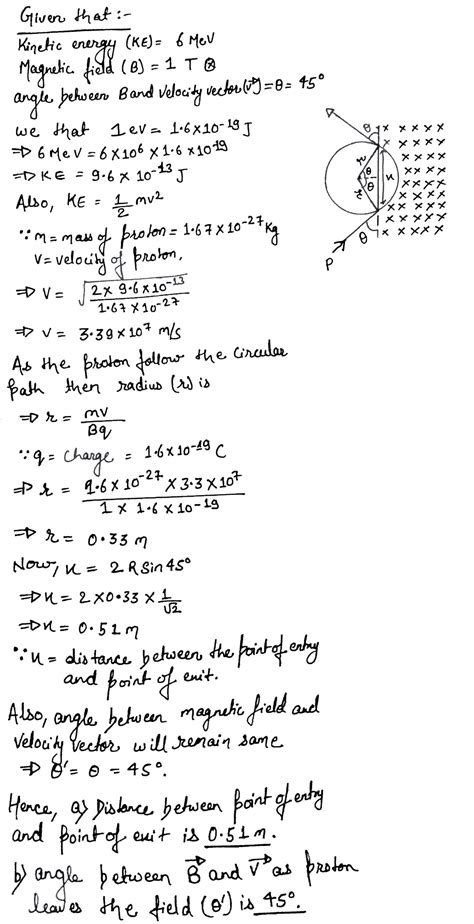 Given that :-
Kinetic energy (KE) = 6 MeV
Magnetic field (B) = 1 T ⊗
angle between B and velocity vector (v⃗) = θ = 45°
we that 1 eV = 1.6×10⁻¹⁹ J
⇒ 6 MeV = 6×10⁶ × 1.6×10¹⁹
⇒ KE = 9.6 × 10⁻¹³ J
Also, KE = 1/2 mv²
∵ m = mass of proton = 1.67×10⁻²⁷ Kg
V = velocity of proton,
⇒ V = √(2 × 9.6×10⁻¹³ / 1.67×10⁻²⁷)
⇒ V = 3.39×10⁷ m/s
As the proton follow the circular
path then radius (r) is
⇒ r = mv / Bq
∵ q = charge = 1.6×10⁻¹⁹ C
⇒ r = 1.6×10⁻²⁷ × 3.3×10⁷ / 1 × 1.6×10⁻¹⁹
⇒ r = 0.33 m
Now, x = 2 R Sin 45°
⇒ x = 2×0.33 × 1/√2
⇒ x = 0.51 m
∵ x = distance between the point of entry
and point of exit.
Also, angle between magnetic field and
velocity vector will remain same
⇒ θ' = θ = 45°.
Hence, a) Distance between point of entry
and point of exit is 0.51 m.
b) angle between B⃗ and V⃗ as proton
leaves the field (θ') is 45°.
θ
x x x x
x x x x
r
θ
θ
r
x
θ
P